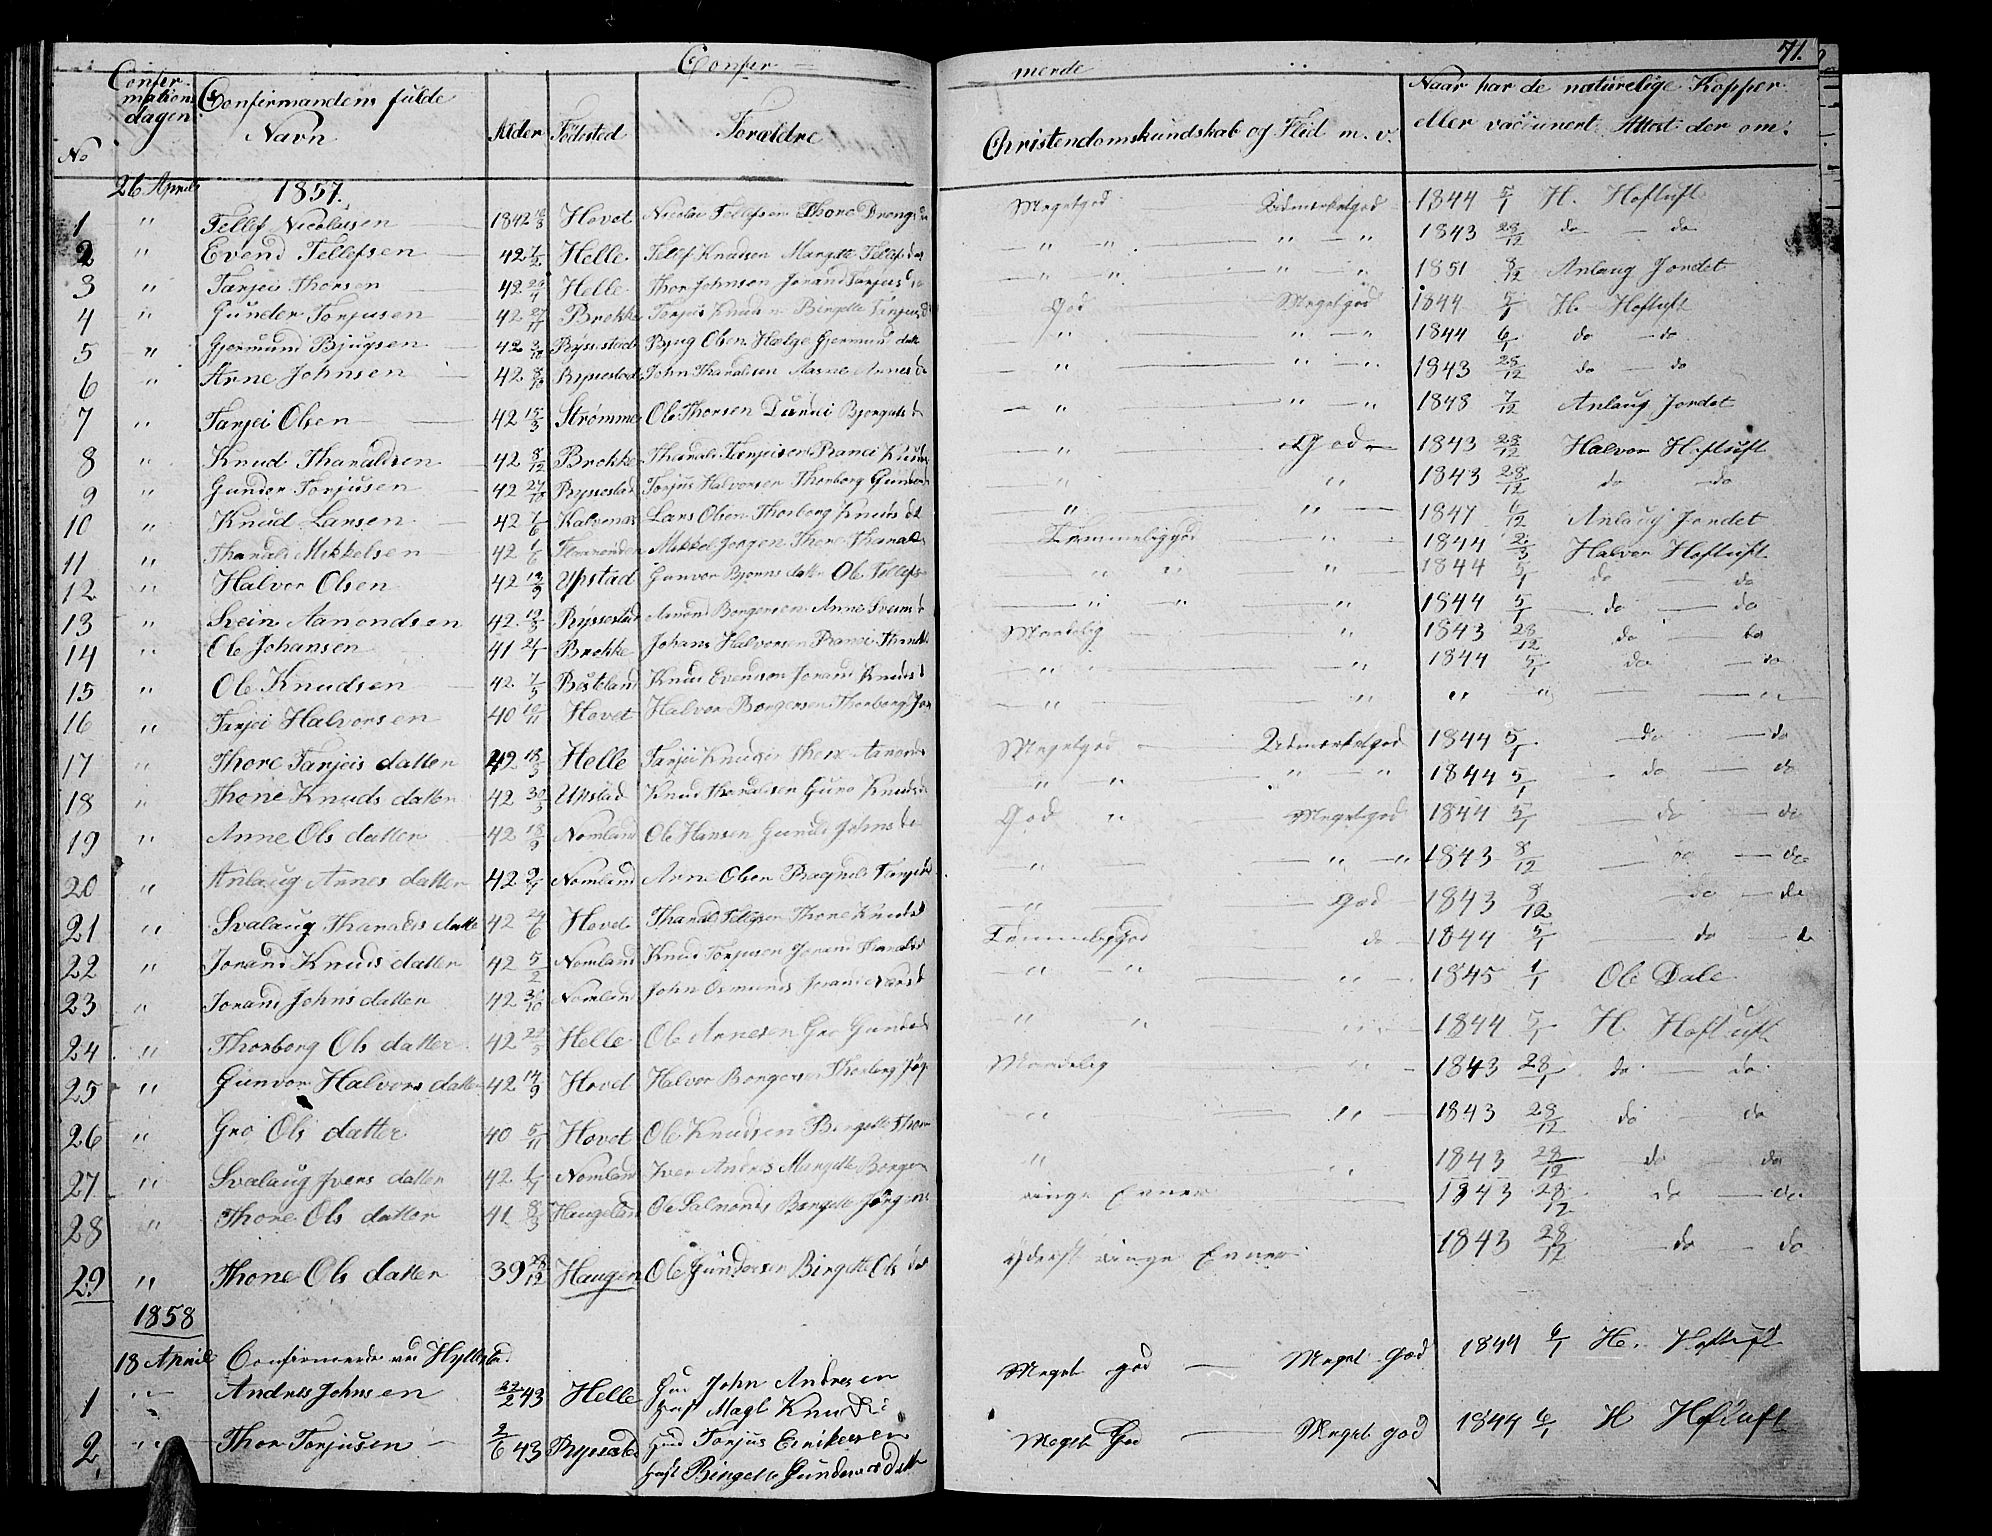 Confer- merde 71.
No Confermations dagen Confirmandens fulde Navn Alder Födsted Forældre Christendomskundskab og Flid m. v. Naar har de naturelige Kopper eller vaccinert. Attest der om:
26 April 1857.
1 " Tellef Nicolaisen 1842 Hovet Nicolai Tellefsen Thone Meget god Udmærket god 1844 5/1 H. Hoftuft
2 " Evend Tellefsen 42 7/2 Helle Tellef Knudsen Margette " " " " 1843 28/12 do do
3 " Tarjei Thorsen 42 Helle Thor Johnsen Joran " " " " 1851 8/12 Anlaug Jordet
4 " Gunder Torjusen 42 27/11 Brekke Torjus Knudsen Birgette God Meget god 1844 5/1 H. Hoftuft
5 " Gjermund Bjugsen 42 3/10 Ryssestad Bjug Olsen Hælge Gjermund datter " " " 1844 6/1 do do
6 " Arne Johnsen 42 Ryssestad John Tharaldsen Aasne Arnes d " " " 1843 28/12 do do
7 " Tarjei Olsen 42 15/3 Strømme Ole Thorsen Bjorguls d " " " 1848 7/12 Anlaug Jordet
8 " Knud Tharaldsen 42 8/12 Brekke Tharald Tarjeisen Ranei Knuds " God 1843 28/12 Halvor Hoftuft
9 " Gunder Torjusen 42 27/10 Ryssestad Torjus Halvorsen Thorborg Gunders " " 1843 28/12 do do
10 " Knud Larsen 42 7/6 Kalvenæs Lars Olsen Thorborg Knuds dt " " 1847 6/12 Anlaug Jordet
11 " Tharald Mikkelsen 42 1/6 Mikkel Thore Tharalds Temmelig god " 1844 2/3 Halvor Hoftuft
12 " Halvor Olsen 42 Upstad Gunvor Bjorns datter Ole Tellefs " " " 1844 5/1 do do
13 " Svein Aamondsen 42 Ryssestad Aamond Borgersen Anne Svens d " " " 1844 5/1 do do
14 " Ole Johansen 41 Brekke Johans Halvorsen Ranei Maadelig " 1843 28/12 do do
15 " Ole Knudsen 42 7/5 Knud Evensen Joran Knuds d " " " 1844 5/1 do do
16 " Tarjei Halvorsen 40 10/11 Hovet Halvor Borgersen Thorborg " " " " " "
17 " Thore Tarjeis datter 42 18/5 Helle Tarjei Knudsen Thore Aamonds Meget god Udmærket god 1844 5/1 do do
18 " Thone Knuds datter 42 30/3 Upstad Knud Tharaldsen Guro Knuds d " " " " 1844 5/1 do do
19 " Anne Ols datter 42 18/9 Nomland Ole Hansen Gunild Johns d God " Meget god 1844 5/1 do do
20 " Anlaug Arnes datter 42 Nomland Arne Olsen Ragnild Tarjeis d " " " 1843 8/12 do do
21 " Svalaug Tharalds datter 42 24/6 Hovet Tharald Tellefsen Thone Knuds d " God 1843 8/12 do do
22 " Joran Knuds datter 42 5/2 Nomland Knud Torjusen Joran Tharalds d Temmelig God do 1844 5/1 do do
23 " Joran Johns datter 42 Nomland John Osmunds Joran " " " 1845 1/1 Ole Dale
24 " Thorborg Ols datter 42 Helle Ole Arnesen Gro Gunders d " " " 1844 5/1 H. Hoftuft
25 " Gunvor Halvors datter 42 14/9 Hovet Halvor Borgersen Thorborg Maadelig " 1843 28/1 do do
26 " Gro Ols datter 40 5/11 Hovet Ole Knudsen Birgette Thor " " 1843 28/12 do do
27 " Svalaug Ivers datter 42 1/1 Nomland Iver Andrés Margette Borger " " 1843 28/12 do do
28 " Thone Ols datter 41 8/3 Haugeland Ole Salmonds Bergette Jørgens ringe Evner 1843 28/12 do do
29 " Thone Ols datter 39 Haugen Ole Gundersen Birgette Ols dat yderst ringe Evner 1843 28/12 do do
1858
18 April Confirmerde ved Hyllestad.
1 " Andres Johnsen 22/2 43 Helle Gmd John Andresen Meget god Meget god 1844 6/1 H. Hoftuft
Magl Knuds
2 " Thor Torjusen 2/6 43 Ryssestad Gmd Torjus Eriksen Meget God Meget god 1844 6/1 H Hoftuft
Birgette Gunders datt